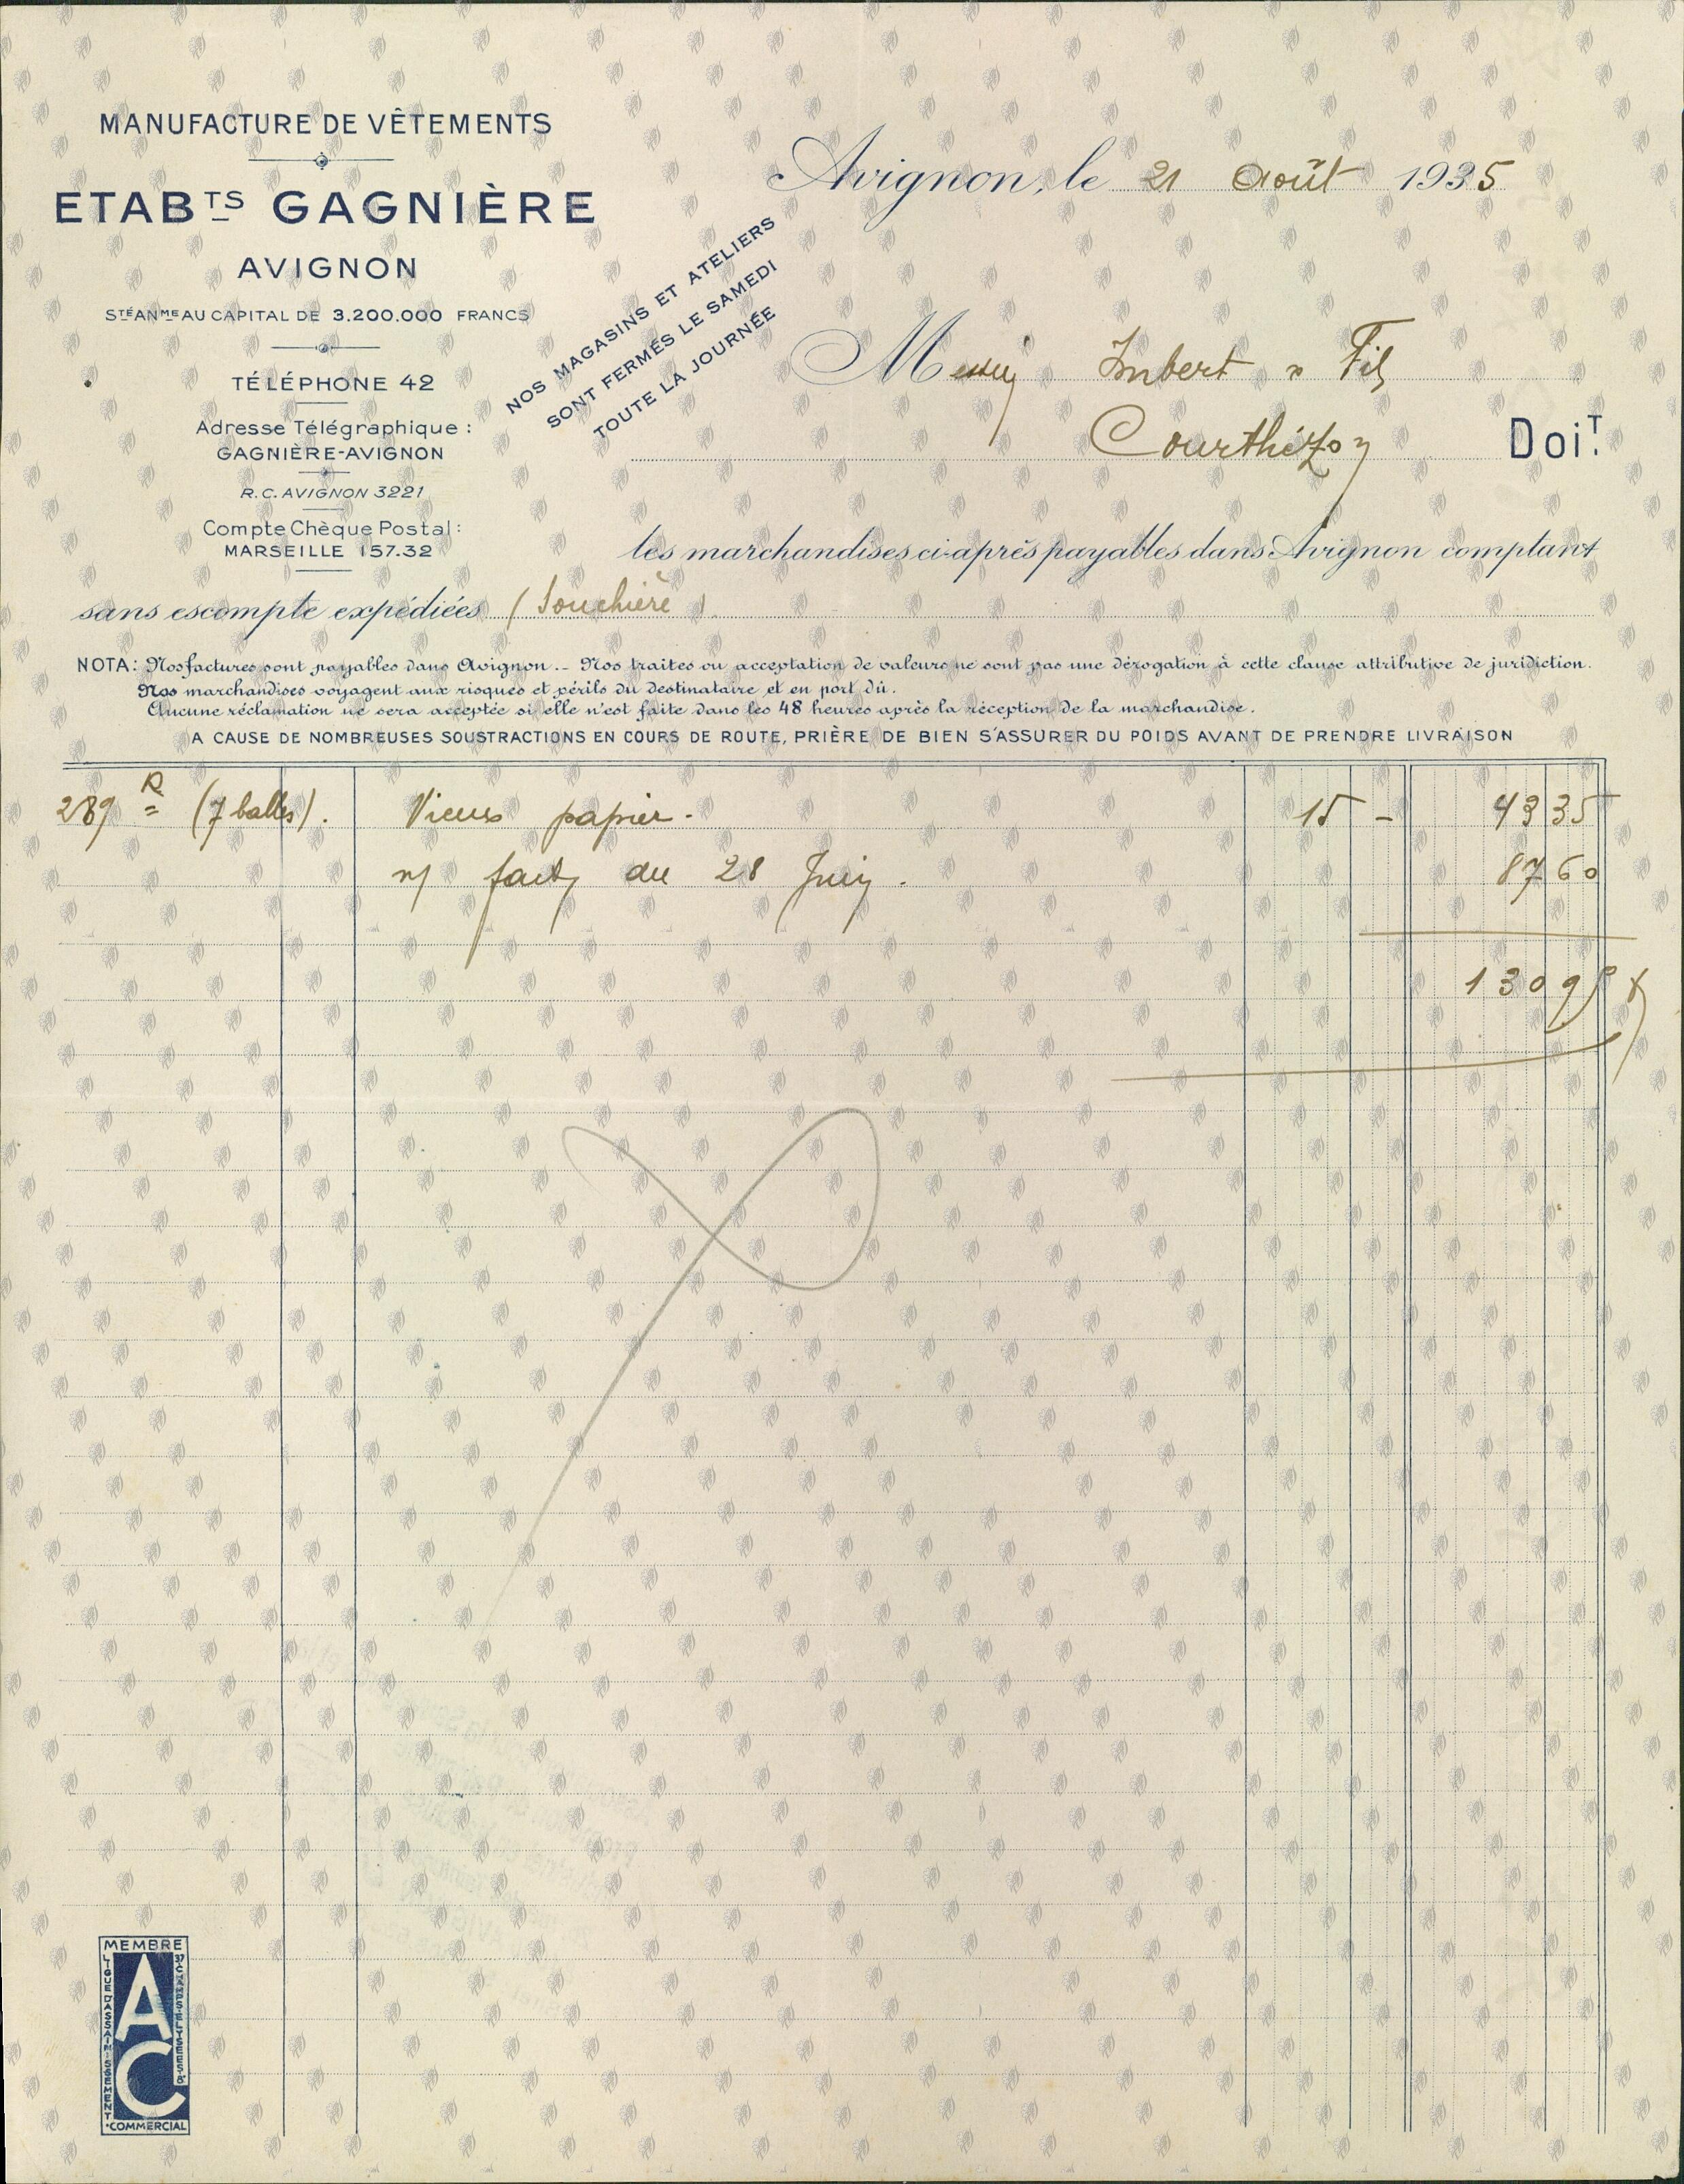 MANUFACTURE DE VÊTEMENTS
ETABTS GAGNIÈRE
AVIGNON
STÉ ANME AU CAPITAL DE 3.200.000 FRANCS
TÉLÉPHONE 42
Adresse Télégraphique :
GAGNIÈRE-AVIGNON
R.C. AVIGNON 3221
Compte Chèque Postal :
MARSEILLE 157.32
NOS MAGASINS ET ATELIERS
SONT FERMÉS LE SAMEDI
TOUTE LA JOURNÉE
Avignon, le 21 Août 1935
Imbert & Fils
Courthézon
DoiT.
les marchandises ci-après payables dans Avignon comptant
sans escompte expédiées (Souchière)
NOTA: Nos factures sont payables dans Avignon.— Nos traites ou acceptation de valeurs ne sont pas une dérogation à cette clause attributive de juridiction.
Nos marchandises voyagent aux risques et périls du destinataire et en port dû.
Aucune réclamation ne sera acceptée si elle n'est faite dans les 48 heures après la réception de la marchandise.
A CAUSE DE NOMBREUSES SOUSTRACTIONS EN COURS DE ROUTE, PRIÈRE DE BIEN S'ASSURER DU POIDS AVANT DE PRENDRE LIVRAISON
289 K (7 balles). Vieux papier. 15 - 43 35
n/ fact du 28 Juin. 87 60
130 95
MEMBRE
LIGUE D'ASSAINISSEMENT
AC
37 CHAMPS-ELYSEES-8e
COMMERCIAL